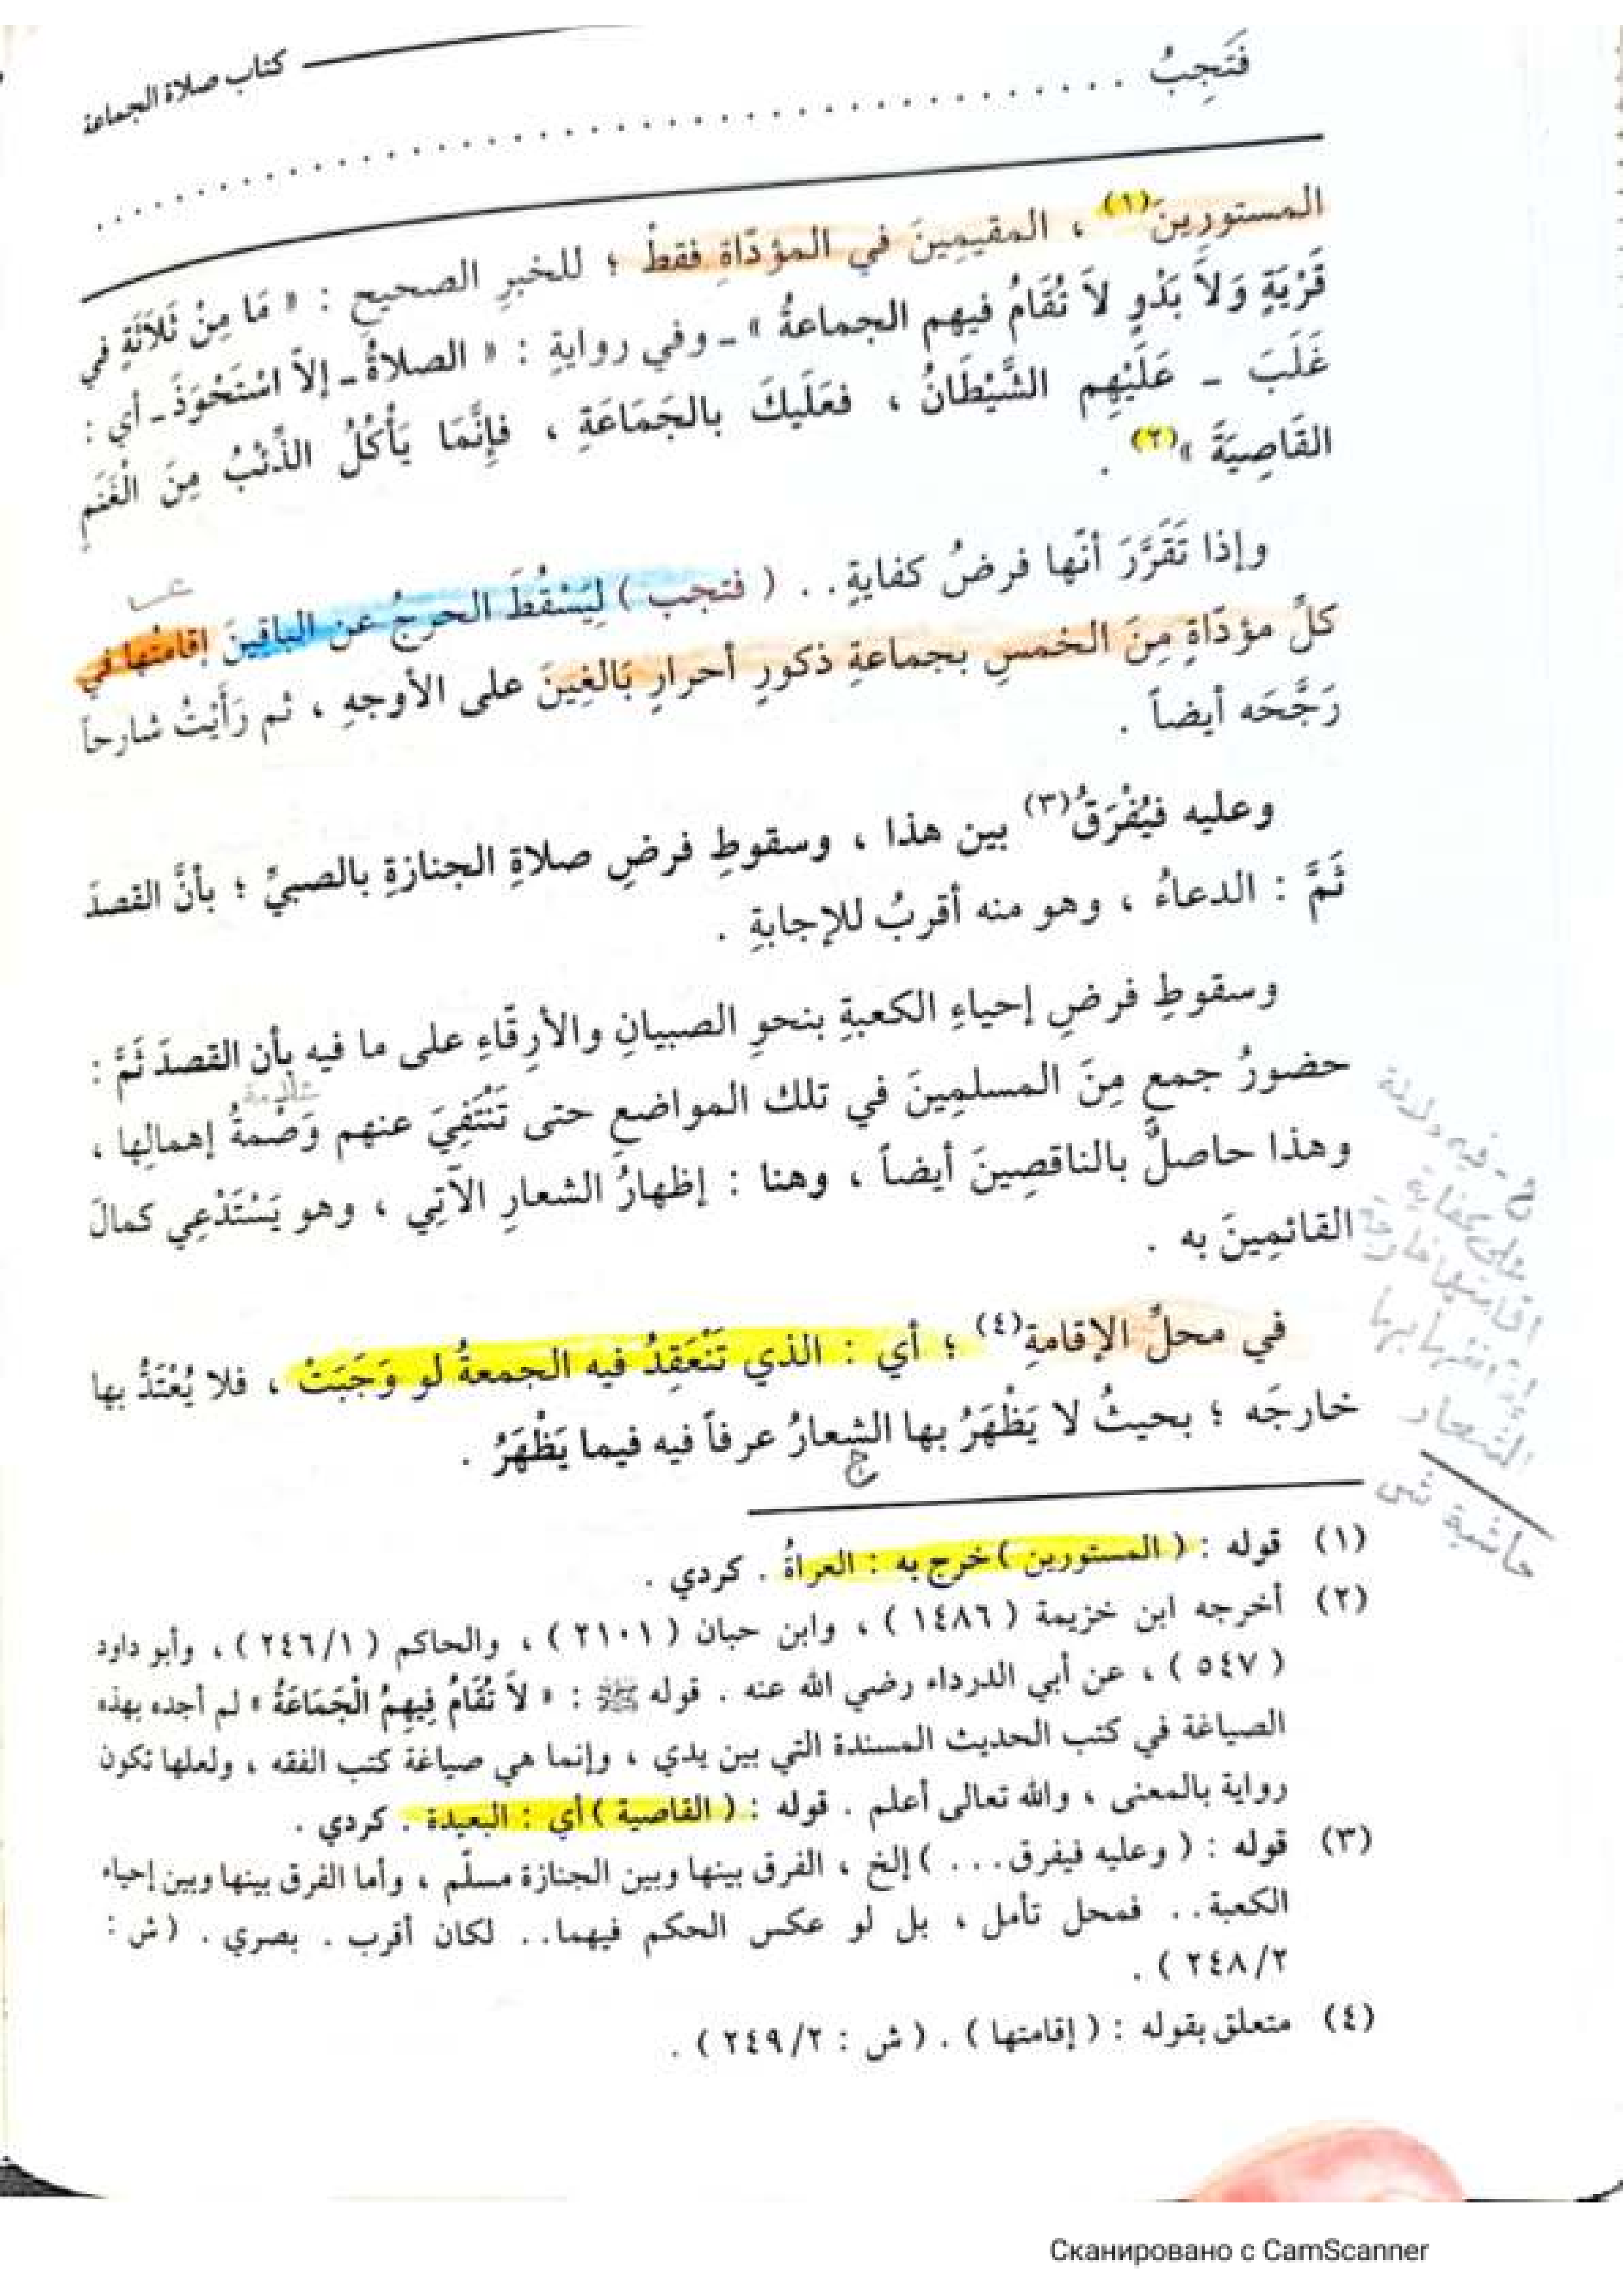 كتاب صلاة الجماعة
فَتَجِبُ . . . . . . . . . . . . . . . . . . . . . . . . . . . . . . . . . . . . . .
المستورِينَ(١) ، المقيمِينَ في المؤدّاةِ فقطْ ؛ للخبرِ الصحيحِ : « مَا مِنْ ثَلاَثَةٍ فِي
قَرْيَةٍ وَلاَ بَدْوٍ لاَ تُقَامُ فيهم الجماعةُ » ـ وفي روايةٍ : « الصلاةُ ـ إلاَّ اسْتَحْوَذَ ـ أي :
غَلَبَ ـ عَلَيْهِم الشَّيْطَانُ ، فَعَلَيكَ بالجَمَاعَةِ ، فإِنَّمَا يَأْكُلُ الذِّئْبُ مِنَ الْغَنَمِ
القَاصِيَةَ »(٢) .
وإذا تَقَرَّرَ أنّها فرضُ كفايةٍ . . ( فتجب ) لِيَسْقُطَ الحرجُ عن الباقِينَ إقامتُها في
كلِّ مؤدّاةٍ مِنَ الخمسِ بجماعةٍ ذكورٍ أحرارٍ بَالغِينَ على الأوجهِ ، ثم رَأَيْتُ شارحاً
رَجَّحَه أيضاً .
وعليه فيُفْرَقُ(٣) بين هذا ، وسقوطِ فرضِ صلاةِ الجنازةِ بالصبيِّ ؛ بأنَّ القصدَ
ثَمَّ : الدعاءُ ، وهو منه أقربُ للإجابةِ .
وسقوطِ فرضِ إحياءِ الكعبةِ بنحوِ الصبيانِ والأرِقّاءِ على ما فيه بأن القصدَ ثَمَّ :
حضورُ جمعٍ مِنَ المسلمِينَ في تلك المواضعِ حتى تَنْتَفِيَ عنهم وَصْمةُ إهمالِها ،
وهذا حاصلٌ بالناقصِينَ أيضاً ، وهنا : إظهارُ الشعارِ الآتِي ، وهو يَسْتَدْعِي كمالَ
القائمِينَ به .
في محلِّ الإقامةِ(٤) ؛ أي : الذي تَنْعَقِدُ فيه الجمعةُ لو وَجَبَتْ ، فلا يُعْتَدُّ بها
خارجَه ؛ بحيثُ لا يَظْهَرُ بها الشعارُ عرفاً فيه فيما يَظْهَرُ .
ج
ج - فيه دلالة
على كفاية
اقامتها خارجه
الشعار
حاشية
(١) قوله : ( المستورين ) خرج به : العراةُ . كردي .
(٢) أخرجه ابن خزيمة ( ١٤٨٦ ) ، وابن حبان ( ٢١٠١ ) ، والحاكم ( ٢٤٦/١ ) ، وأبو داود
( ٥٤٧ ) ، عن أبي الدرداء رضي الله عنه . قوله ﷺ : « لاَ تُقَامُ فِيهِمُ الْجَمَاعَةُ » لم أجده بهذه
الصياغة في كتب الحديث المسندة التي بين يدي ، وإنما هي صياغة كتب الفقه ، ولعلها تكون
رواية بالمعنى ، والله تعالى أعلم . قوله : ( القاصية ) أي : البعيدة . كردي .
(٣) قوله : ( وعليه فيفرق . . . ) إلخ ، الفرق بينها وبين الجنازة مسلّم ، وأما الفرق بينها وبين إحياء
الكعبة . . فمحل تأمل ، بل لو عكس الحكم فيهما . . لكان أقرب . بصري . ( ش :
٢٤٨/٢ ) .
(٤) متعلق بقوله : ( إقامتها ) . ( ش : ٢٤٩/٢ ) .
Сканировано с CamScanner